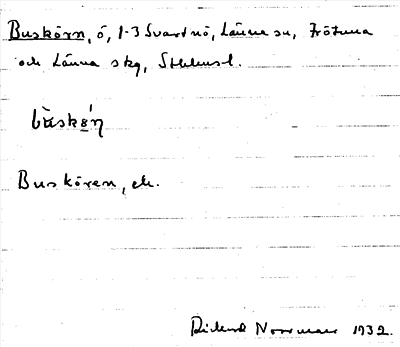 Buskörn, ö, 1-3 Svartnö, Länna sn, Frötuna
och Länna skg, Sthlmsl.
bùskǿn
Buskören, ek.
Rickard Norrman 1932.